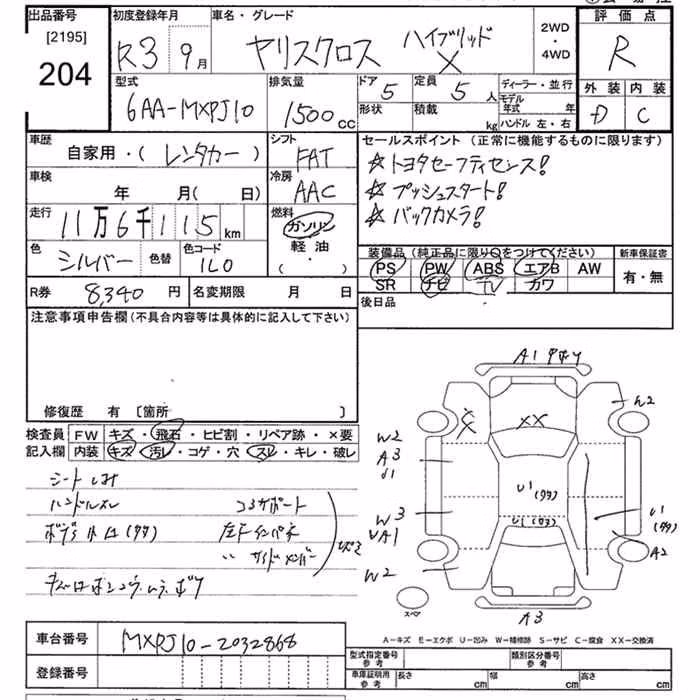 出品番号 初度登録年月 車名・グレード 2WD・4WD 評価点
[2195]
204
R3 9月 ヤリスクロス ハイブリッド X R
型式 排気量 ドア 5 定員 5人 ディーラー・並行 外装 内装
6AA-MXPJ10 1500cc 形状 積載 kg モデル年式 年 D C
ハンドル 左・右
車歴 シフト セールスポイント (正常に機能するものに限ります)
自家用・(レンタカー) FAT ☆トヨタセーフティセンス!
車検 冷房 ☆プッシュスタート!
年 月(日) AAC ☆バックカメラ!
走行 燃料
11万6千115km ガソリン
軽油
・( )
色 シルバー 色替 色コード 1L0
装備品 (純正品に限り○をつけてください) 新車保証書
PS PW ABS エアB AW 有・無
SR ナビ TV カワ
R券 8,340円 名変期限 月 日 後日品
注意事項申告欄 (不具合内容等は具体的に記入して下さい)
修復歴 有 [箇所 ]
検査員 FW キズ・飛石・ヒビ割・リペア跡・×要
記入欄 内装 キズ・汚レ・コゲ・穴・スレ・キレ・破レ
シートしみ
ハンドルスレ コアサポート
左Fインパネ
〃 サイドメンバー
A1
W2
X XX
W2
A3
U1
W3
W2
U1
U1
U1
A2
A3
スペア
A-キズ E-エクボ U-凹み W-補修跡 S-サビ C-腐食 XX-交換済
車台番号 MXPJ10-2032868
登録番号
型式指定番号 参考 類別区分番号 参考
車庫証明用 参考 長さ cm 幅 cm 高さ cm